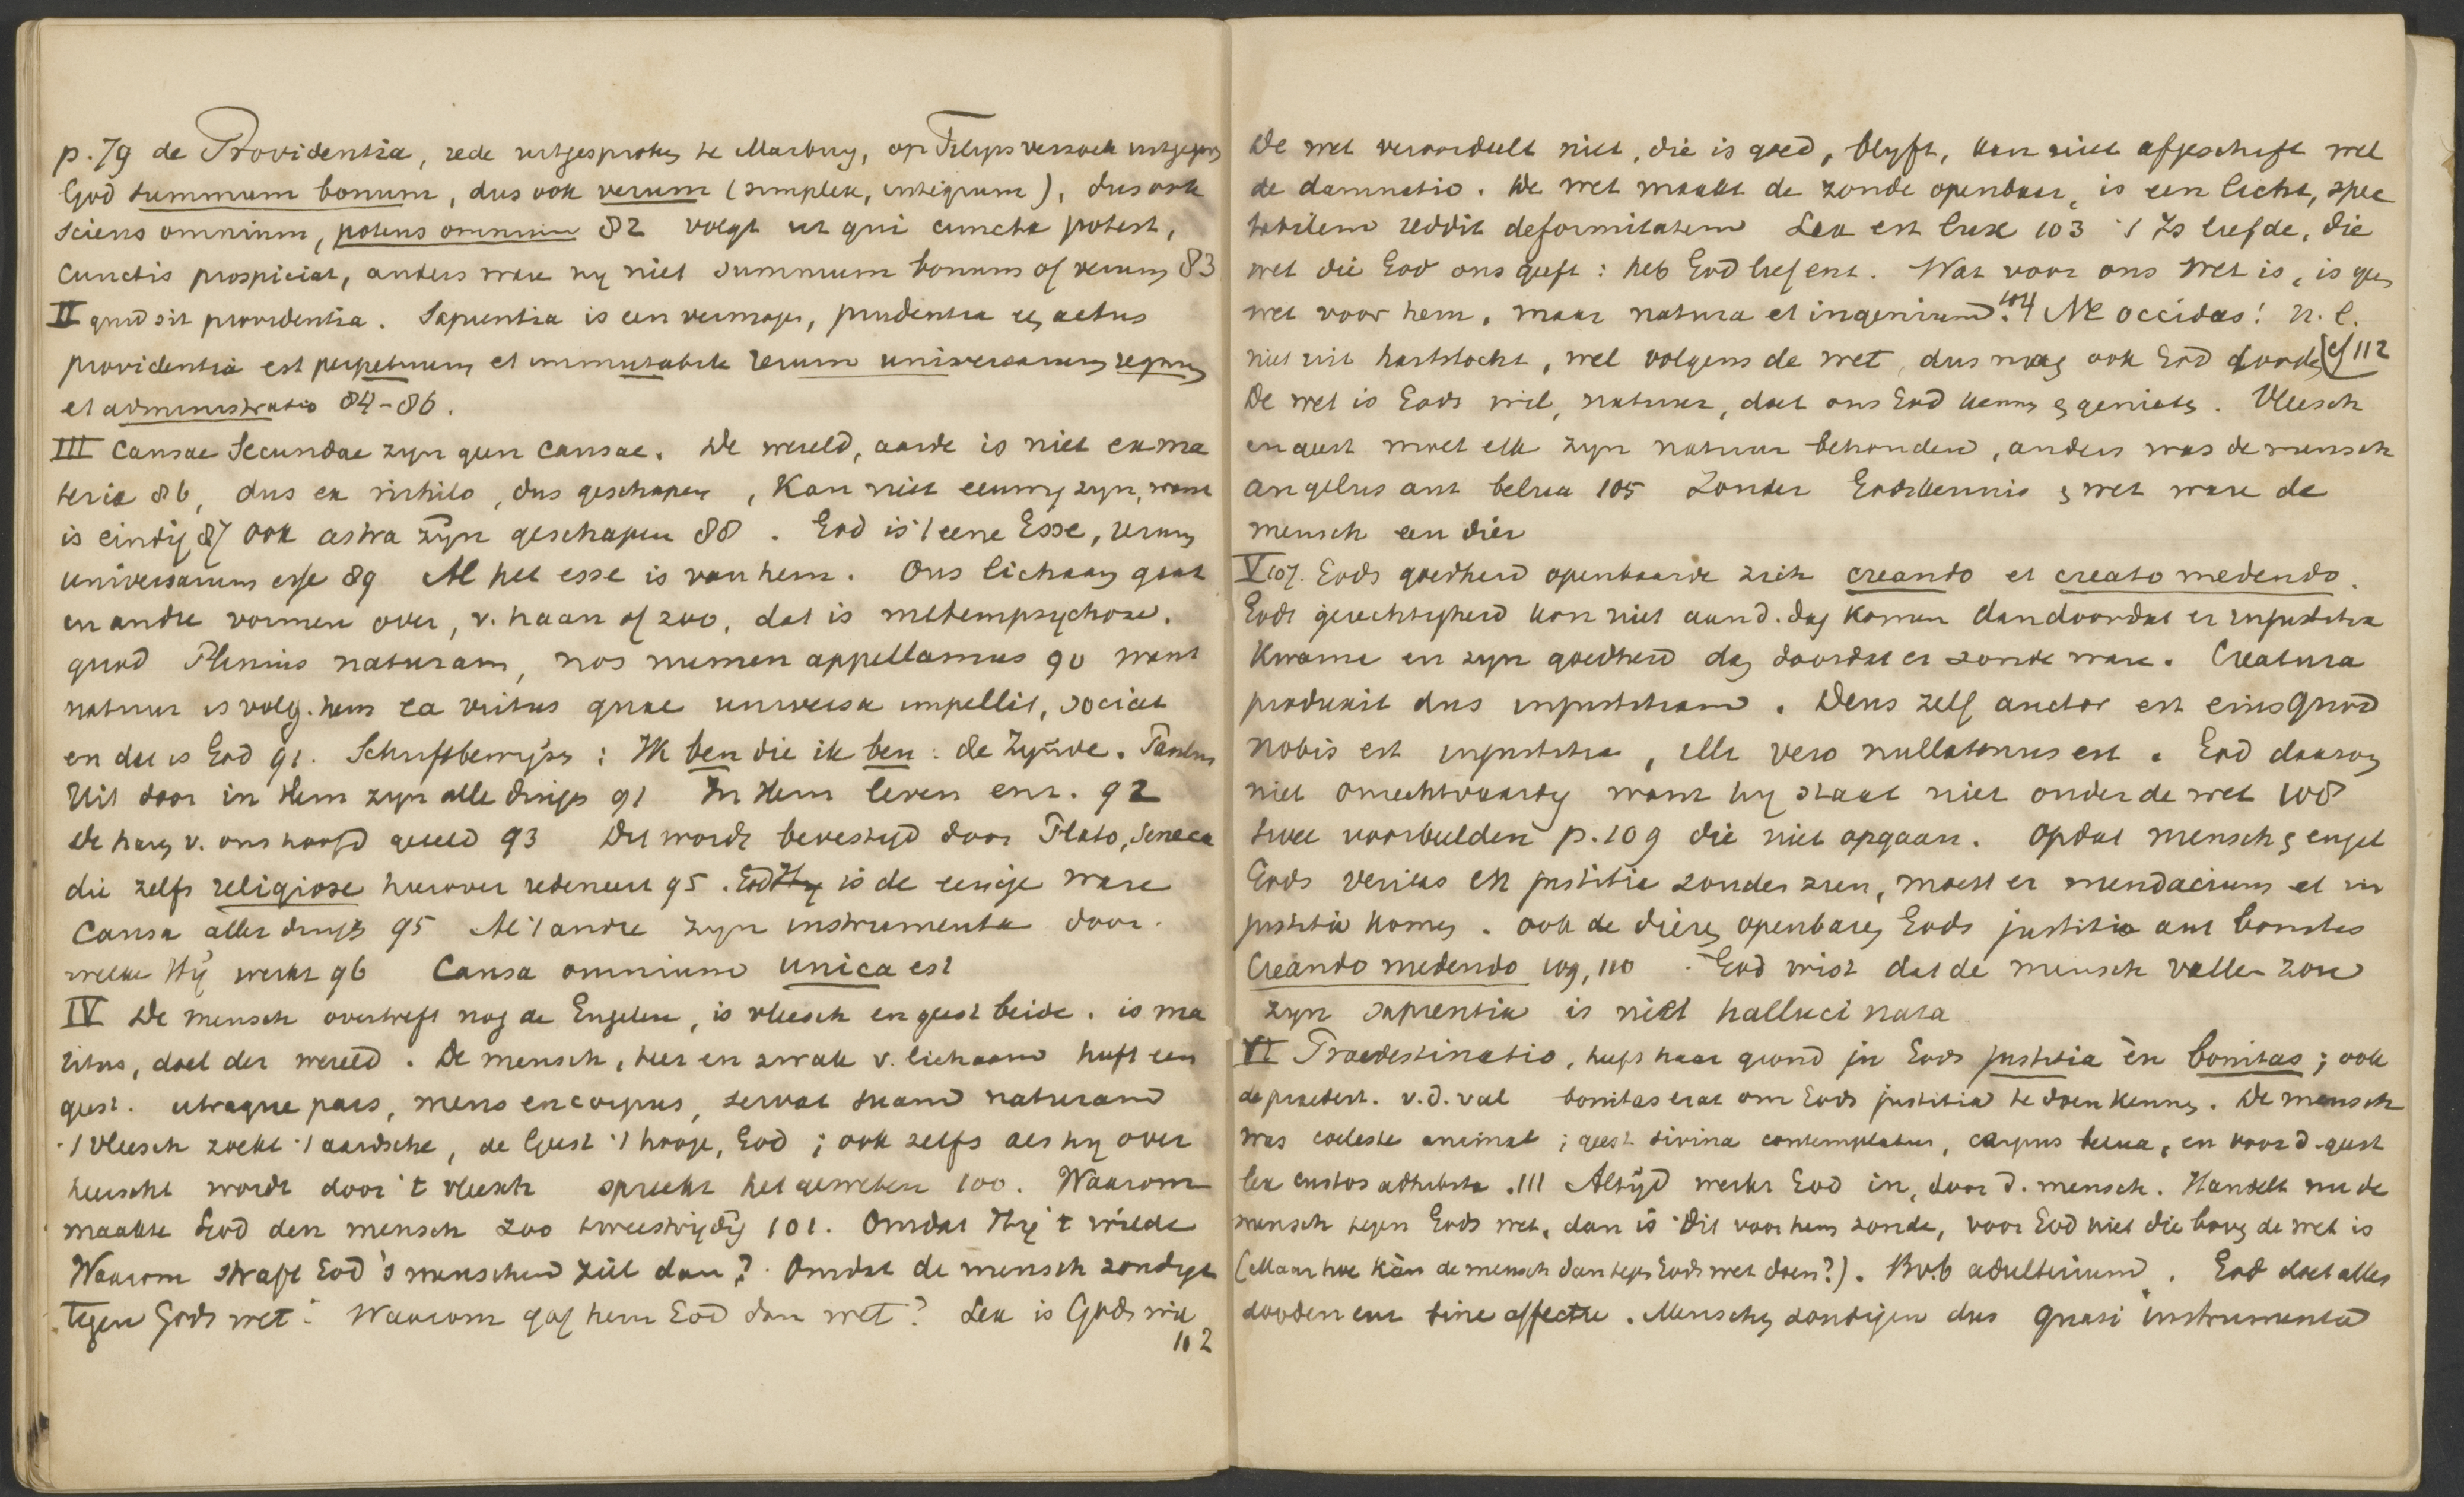 p. 79 de Providentia, rede uitgesproken te Marburg, op Filips verzoek uitgegeven
God summum bonum, dus ook verum (simplex, integrum), dus ook
sciens omnium, potens omnium 82 volgt ut qui cuncta potest,
cunctis prospiciat, anders ware hy niet summum bonum of verum 83
II quid sit providentia. Sapientia is een vermogen, prudentia een actus
providentia est perpetuum et immutabile rerum universarum regnum
et administratio 84-86.
III Causae Secundae zyn geen causae. De wereld, aarde is niet ex ma
teria 86, dus ex nihilo, dus geschapen, kan niet eeuwig zyn, want
is eindig 87 ook astra zyn geschapen 88. God is 't eene Esse, rerum
universarum esse 89 Al het esse is van hem. Ons lichaam gaat
in andre vormen over, v. haan of zoo, dat is metempsychose.
quod Plinius naturam, nos numen appellamus 90 want
natuur is volg. hem ea virtus quae universa impellit, sociat
en dat is God 91. Schriftbewijzen: Ik ben die ik ben: de Zijnde. Paulus
Uit door in Hem zyn alle dingen 91 In Hem leven enz. 92
De haren v. ons hoofd geteld 93 Dit wordt bevestigd door Plato, Seneca
die zelfs religiose hierover redeneert 95. God Hy is de eenige ware
Causa aller dingen 95 Al 't andre zyn instrumenta door
welke Hij werkt 96 Causa omnium unica est
IV De mensch overtreft nog de Engelen, is vleesch en geest beide. is ma
ritus, doel der wereld. De mensch, teer en zwak v. lichaam heeft een
geest. utraque pars, mens en corpus, servat suam naturam
't vleesch zoekt 't aardsche, de Geest 't hooge, God; ook zelfs als hy over
heerscht wordt door 't vleesch spreekt het geweten 100. Waarom
maakte God den mensch zoo tweestrijdig 101. Omdat Hij 't wilde
Waarom straft God 's menschen ziel dan? Omdat de mensch zondigt
tegen Gods wet. Waarom gaf hem God dan wet? Lex is Gods wil
102
De wet veroordeelt niet, die is goed, blyft, kan niet afgeschaft wel
de damnatio. De wet maakt de zonde openbaar, is een licht, spec
tabilem reddit deformitatem Lex est lux 103 't Is liefde, die
wet die God ons geeft: heb God lief enz. Wat voor ons wet is, is geen
wet voor hem, maar natura et ingenium. 104 Ne occidas! n.l.
niet uit hartstocht, wel volgens de wet, dus mag ook God dooden (cf 112
De wet is Gods wil, natuur, doet ons God kennen en genieten. Vleesch
en geest moet elk zyn natuur behouden, anders was de mensch
angelus aut belua 105 Zonder Godskennis en wet ware de
mensch een dier
V 107. Gods goedheid openbaarde zich creando et creato medendo.
Gods gerechtigheid kon niet aan d. dag komen dan doordat er injustitia
kwame en zyn goedheid dan doordat er zonde ware. Creatura
produxit dus injustitiam. Deus zelf auctor est eius quod
nobis est injustitia, illi vero nullatenus est. God daarom
niet onrechtvaardig want hy staat niet onder de wet 108
twee voorbeelden p. 109 die niet opgaan. Opdat mensch en engel
Gods veritas en justitia zouden zien, moest er mendacium et in
justitia komen. ook de dieren openbaren Gods justitia aut bonitas
Creando medendo 109, 110. God wist dat de mensch vallen zou
zyn sapientia is niet hallucinata
VI Praedestinatio, heeft haar grond in Gods justitia èn bonitas; ook
de praedest. v. d. val bonitas erat om Gods justitia te doen kennen. De mensch
was coeleste animal; geest divina contemplatur, corpus belua, en voor d. geest
lex custos adhibita. 111 Altijd werkt God in, door d. mensch. Handelt nu de
mensch tegen Gods wet, dan is dit voor hem zonde, voor God niet die boven de wet is
(Maar hoe kàn de mensch dan tegen Gods wet doen?). Bv.b adulterium. God doet alles
dooden enz sine affectu. Menschen zondigen dus quasi instrumenta